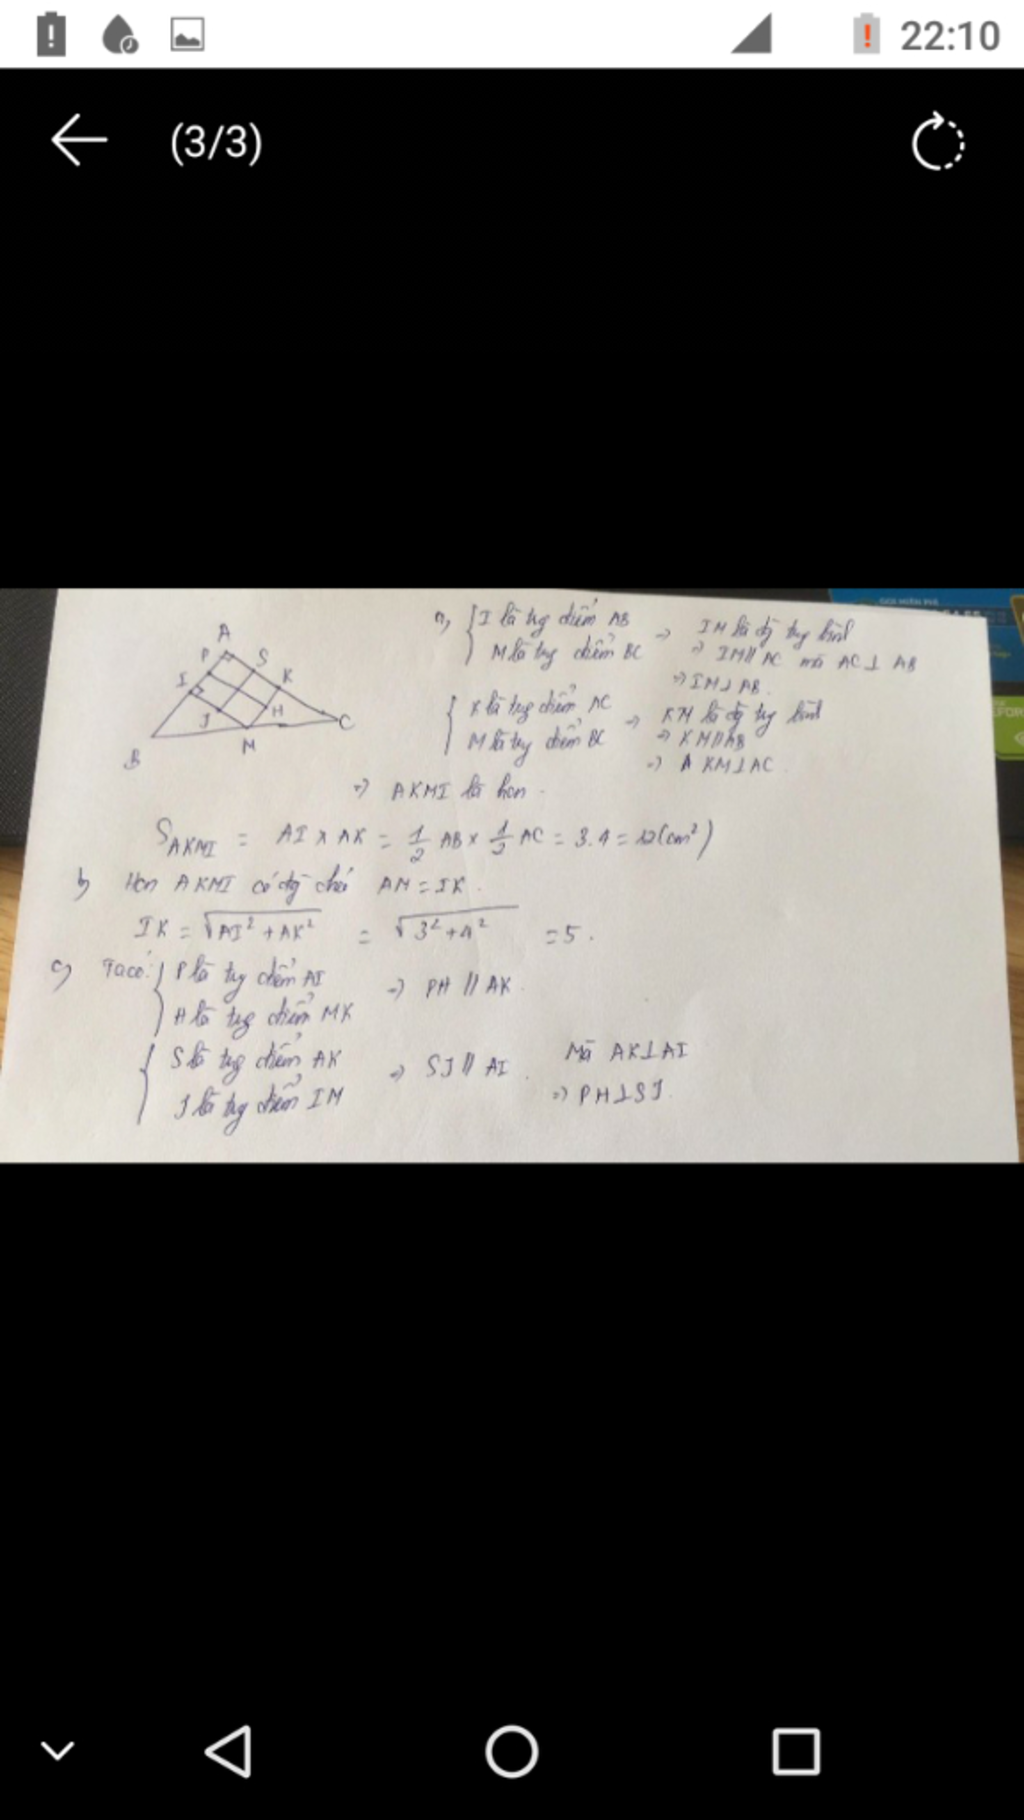 22:10
(3/3)
A
P
S
I
K
J
H
C
B
M
a, { I là tg điểm AB
M là tg điểm BC
=> IM là đg tg bình
=> IM // AC mà AC ⊥ AB
=> IM ⊥ AB.
{ K là tg điểm AC
M là tg điểm BC
=> KM là đg tg bình
=> KM // AB
=> A KM ⊥ AC
=> AKMI là hcn.
S AKMI = AI x AK = 1/2 AB x 1/2 AC = 3.4 = 12 (cm²)
b, Hcn AKMI có đg chéo AM = IK.
IK = √AI² + AK² = √3² + 4² = 5.
c, Ta có: { P là tg điểm AI
H là tg điểm MK
=> PH // AK.
{ S là tg điểm AK
J là tg điểm IM
=> SJ // AI.
Mà AK ⊥ AI
=> PH ⊥ SJ.